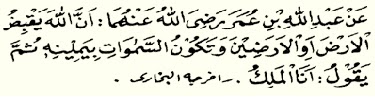 عَنْ عَبْدِ اللهِ بْنِ عُمَرَ رَضِيَ اللهُ عَنْهُمَا: اَنَّ اللهَ يَقْبِضُ
الْاَرْضَ اَوِ الْاَرَضِيْنَ وَتَكُوْنُ السَّمٰوَاتُ بِيَمِيْنِهٖ ثُمَّ
يَقُوْلُ: اَنَا الْمَلِكُ. اخرجه البخاری.